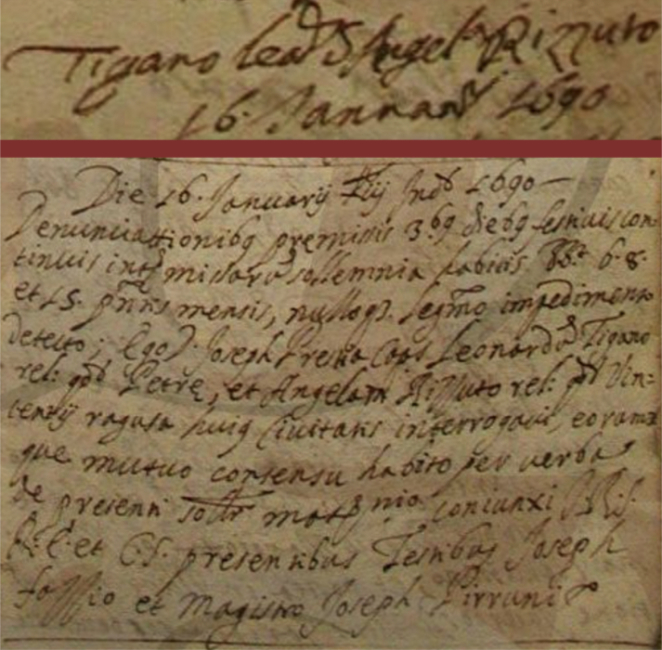 Tigano leod. Angela Rizzuto
16. Januarij 1690
Die 16. Januarij Ind. 1690
Denunciationibq premissis 3bq diebq festivis con
tinuis inter missarū sollemnia habitis 6. 8.
et 15. pntis mensis, nulloq. legmo impedimento
detecto; Ego D. Joseph Cops Leonardū Tigano
rel: qd Petre, et Angelam Rizzuto rel: qd Vin=
centij ragusa huiq Civitatis interrogavi, eorum=
que mutuo consensu habito per verba
de presenti sollr matrimonio coniunxi
R. E. et C. S. presentibus Testibus Joseph
et Magistro Joseph Pirruni